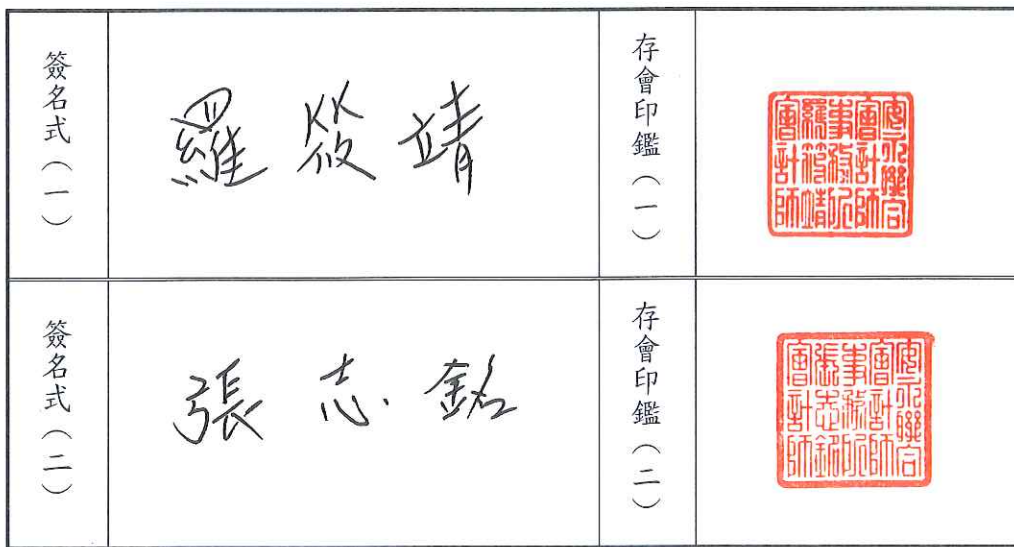 簽名式（一）
羅筱靖
存會印鑑（一）
安永聯合
會計師
事務所
羅筱靖
會計師
簽名式（二）
張志銘
存會印鑑（二）
安永聯合
會計師
事務所
張志銘
會計師